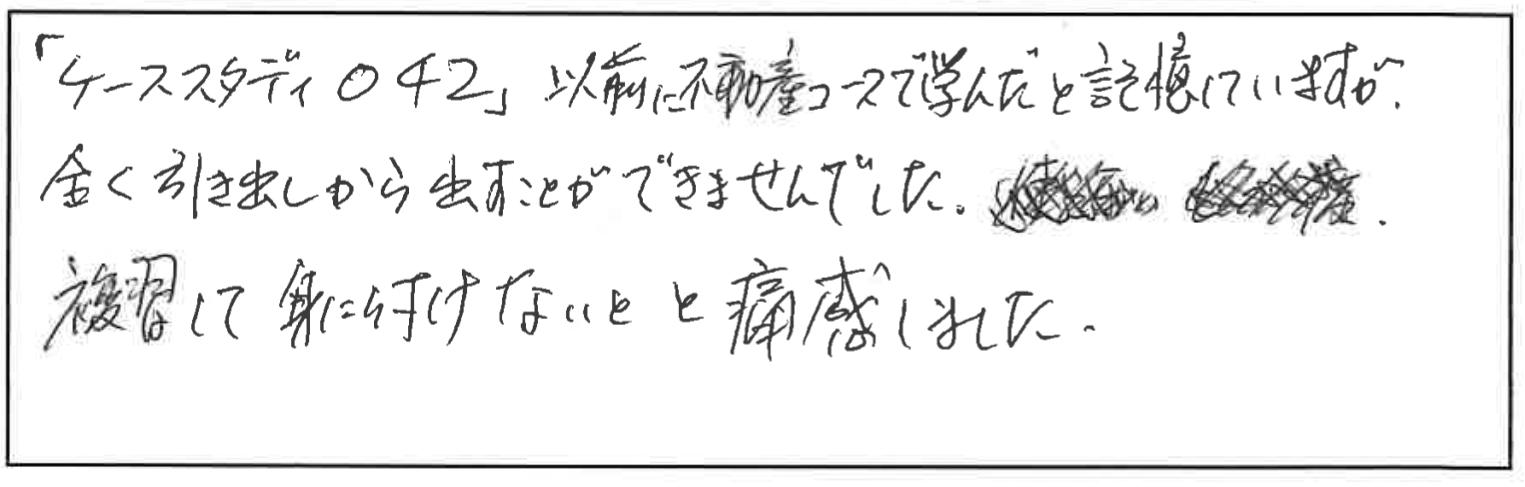 「ケーススタディ042」以前に不動産コースで学んだと記憶していますが、
全く引き出しから出すことができませんでした。
複習して身に付けないとと痛感しました。